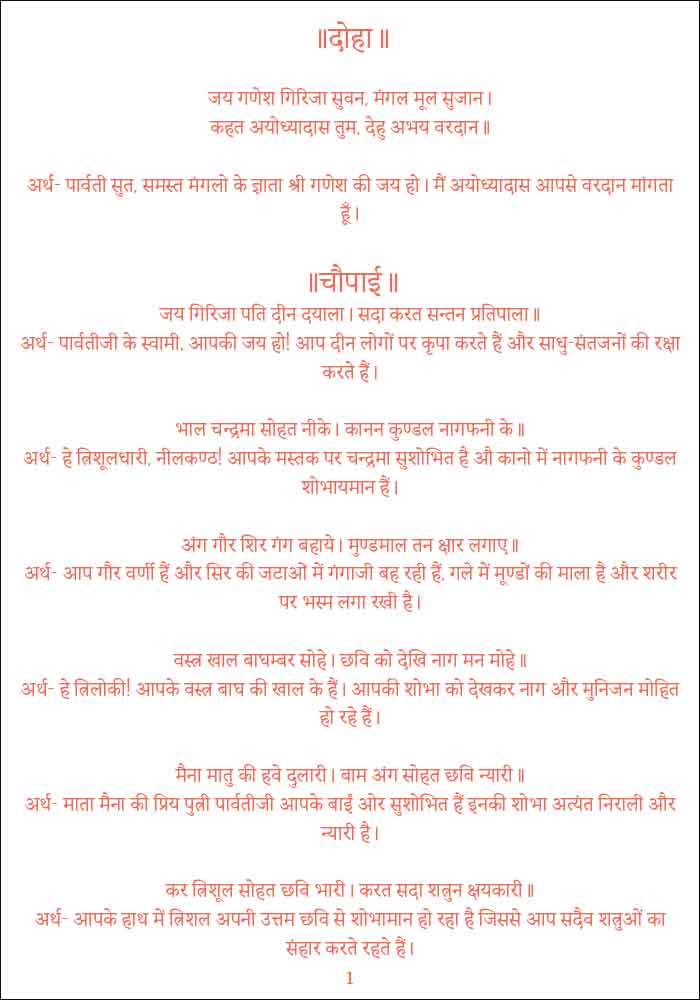 ॥दोहा॥
जय गणेश गिरिजा सुवन, मंगल मूल सुजान।
कहत अयोध्यादास तुम, देहु अभय वरदान॥
अर्थ- पार्वती सुत, समस्त मंगलो के ज्ञाता श्री गणेश की जय हो। मैं अयोध्यादास आपसे वरदान मांगता
हूँ।
॥चौपाई॥
जय गिरिजा पति दीन दयाला। सदा करत सन्तन प्रतिपाला॥
अर्थ- पार्वतीजी के स्वामी, आपकी जय हो! आप दीन लोगों पर कृपा करते हैं और साधु-संतजनों की रक्षा
करते हैं।
भाल चन्द्रमा सोहत नीके। कानन कुण्डल नागफनी के॥
अर्थ- हे त्रिशूलधारी, नीलकण्ठ! आपके मस्तक पर चन्द्रमा सुशोभित है औ कानो में नागफनी के कुण्डल
शोभायमान हैं।
अंग गौर शिर गंग बहाये। मुण्डमाल तन क्षार लगाए॥
अर्थ- आप गौर वर्णी हैं और सिर की जटाओं में गंगाजी बह रही हैं, गले में मूण्डों की माला है और शरीर
पर भस्म लगा रखी है।
वस्त्र खाल बाघम्बर सोहे। छवि को देखि नाग मन मोहे॥
अर्थ- हे त्रिलोकी! आपके वस्त्र बाघ की खाल के हैं। आपकी शोभा को देखकर नाग और मुनिजन मोहित
हो रहे हैं।
मैना मातु की हवे दुलारी। बाम अंग सोहत छवि न्यारी॥
अर्थ- माता मैना की प्रिय पुत्री पार्वतीजी आपके बाईं ओर सुशोभित हैं इनकी शोभा अत्यंत निराली और
न्यारी है।
कर त्रिशूल सोहत छवि भारी। करत सदा शत्रुन क्षयकारी॥
अर्थ- आपके हाथ में त्रिशल अपनी उत्तम छवि से शोभामान हो रहा है जिससे आप सदैव शत्रुओं का
संहार करते रहते हैं।
1